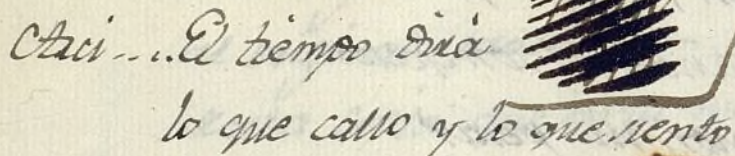 Araci....El tiempo dirá
lo que callo y lo que siento